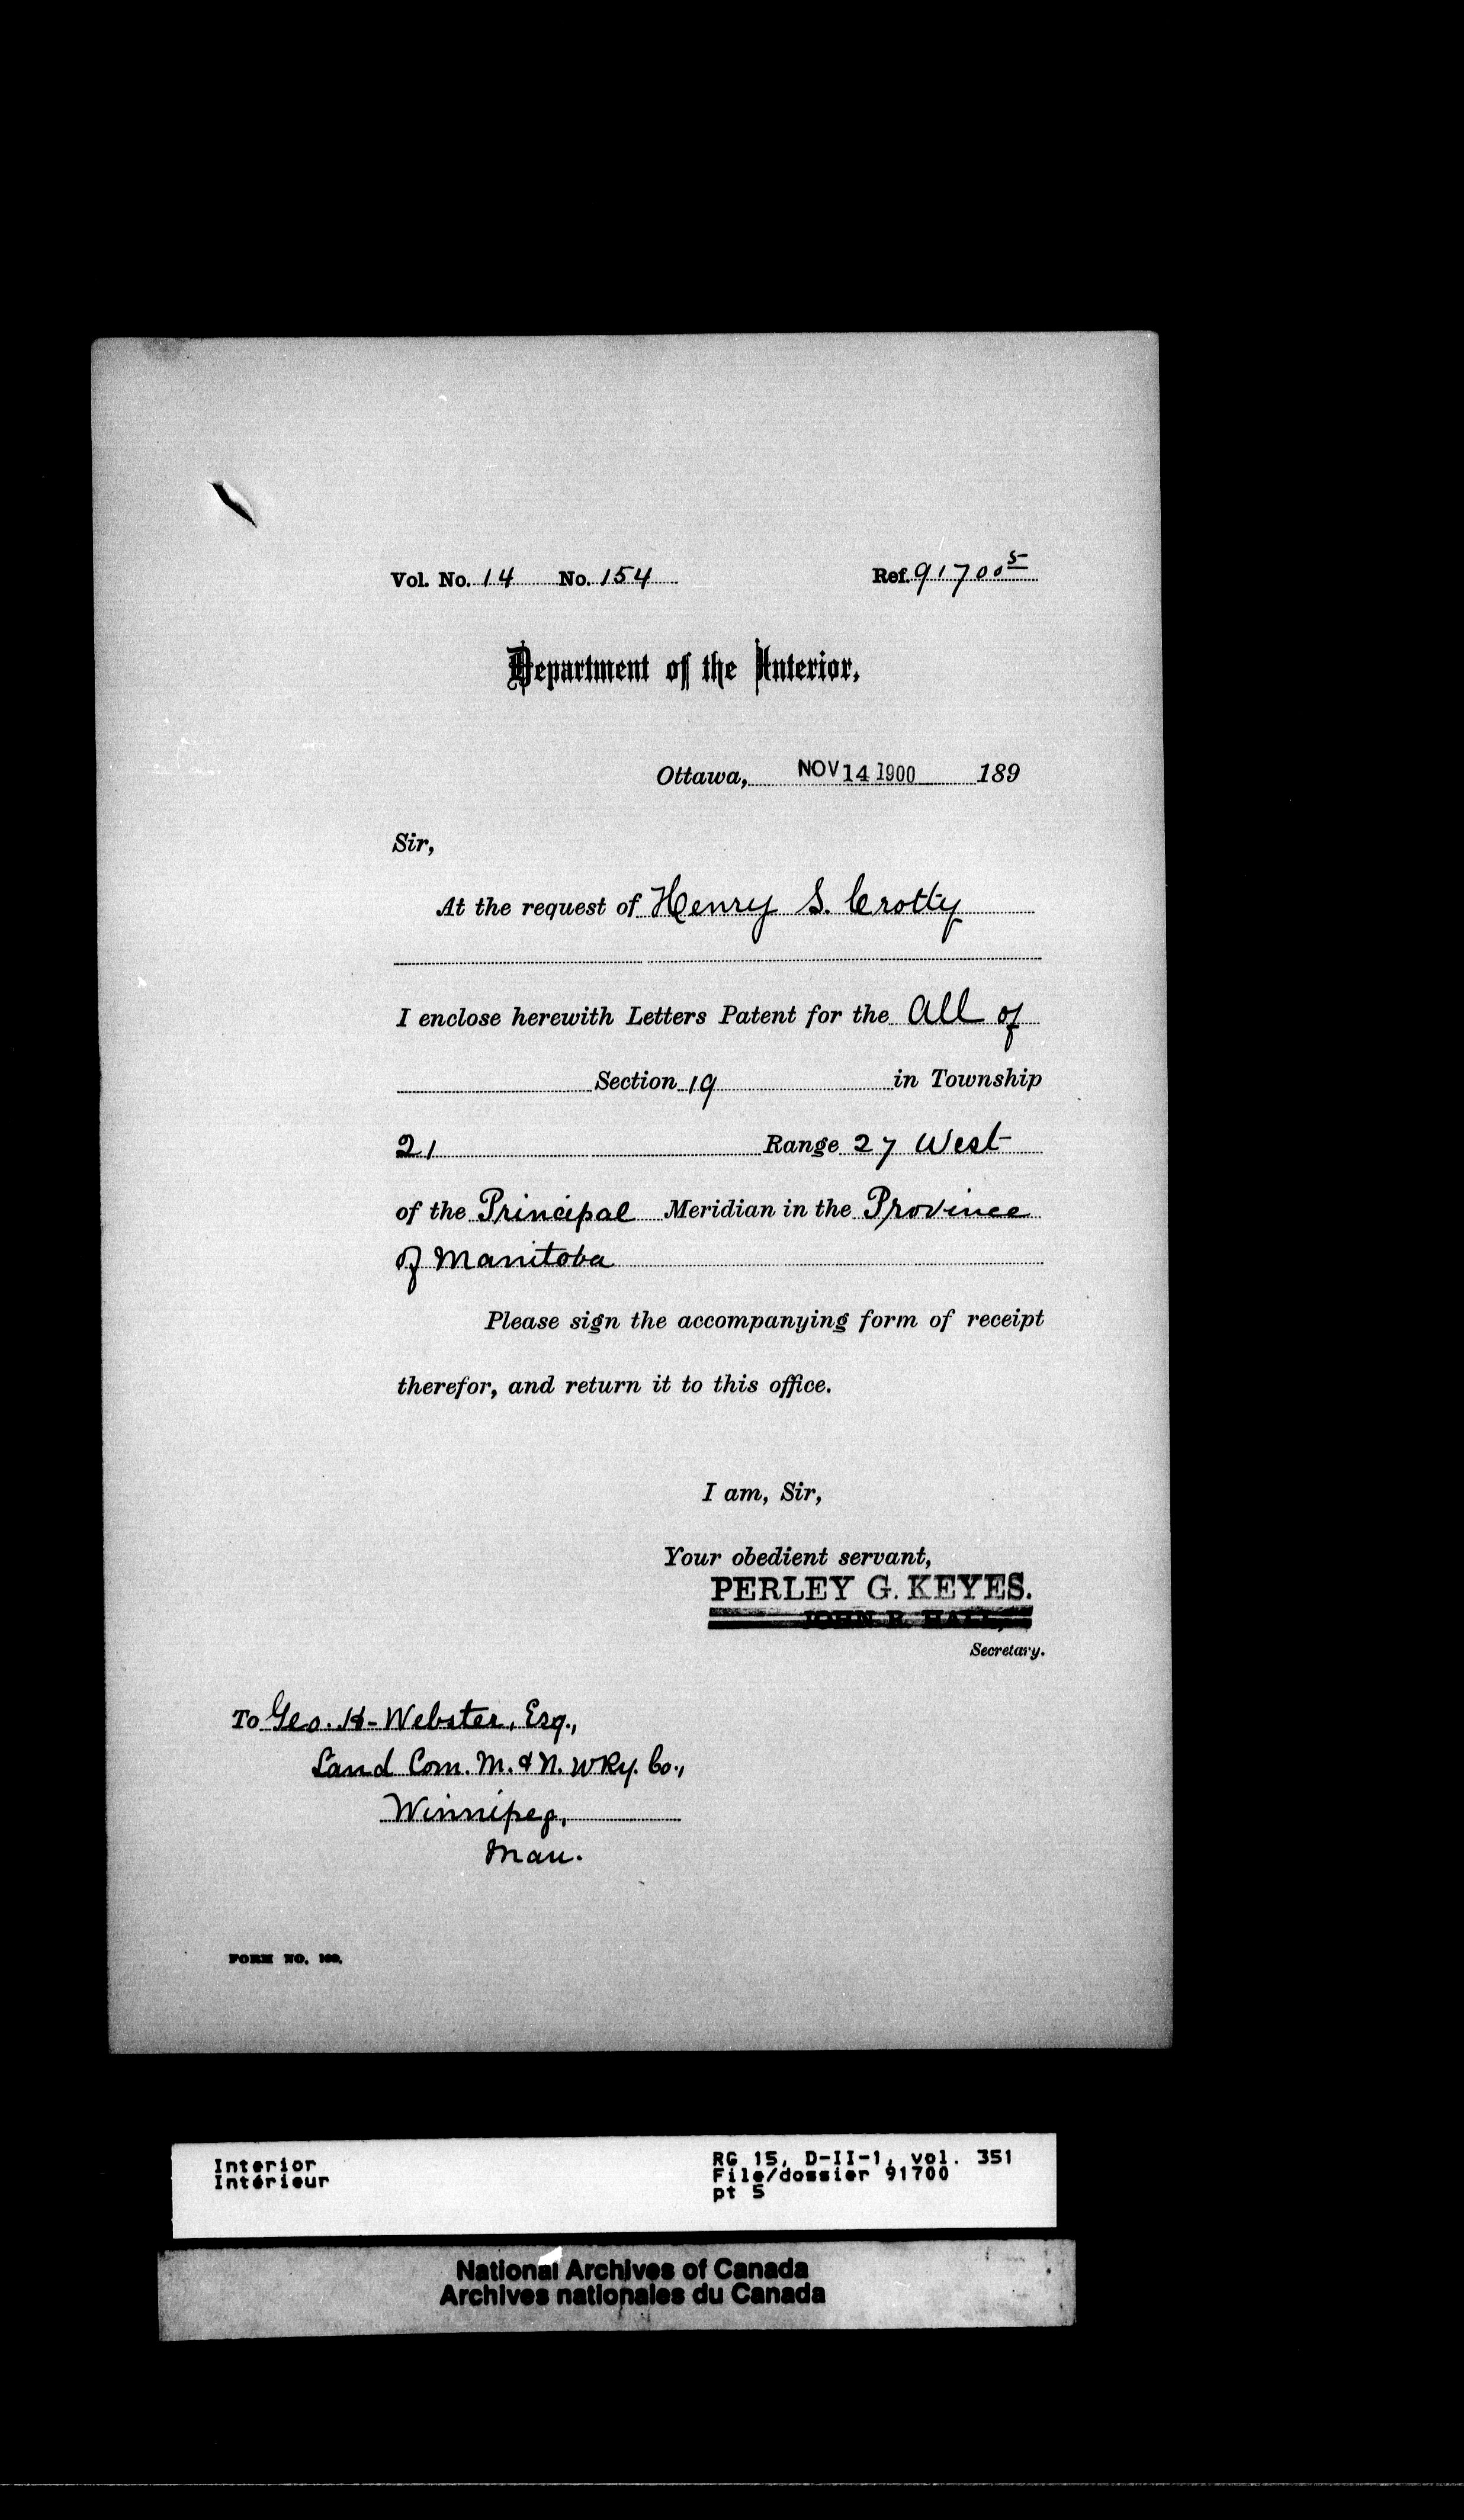 Vol. No. 14 No. 154 Ref. 91700 5
Department of the Interior,
Ottawa, NOV 14 1900 189
Sir,
At the request of Henry S. Crotty
I enclose herewith Letters Patent for the All of
Section 19 in Township
21 Range 27 West
of the Principal Meridian in the Province
of Manitoba
Please sign the accompanying form of receipt
therefor, and return it to this office.
I am, Sir,
Your obedient servant,
PERLEY G. KEYES.
JOHN R. HALL,
Secretary.
To Geo. H. Webster, Esq.,
Land Com. M. & N. W Ry. Co.,
Winnipeg,
Man.
FORM NO. 160.
Interior
Intérieur
RG 15, D-II-1, vol. 351
File/dossier 91700
pt 5
National Archives of Canada
Archives nationales du Canada